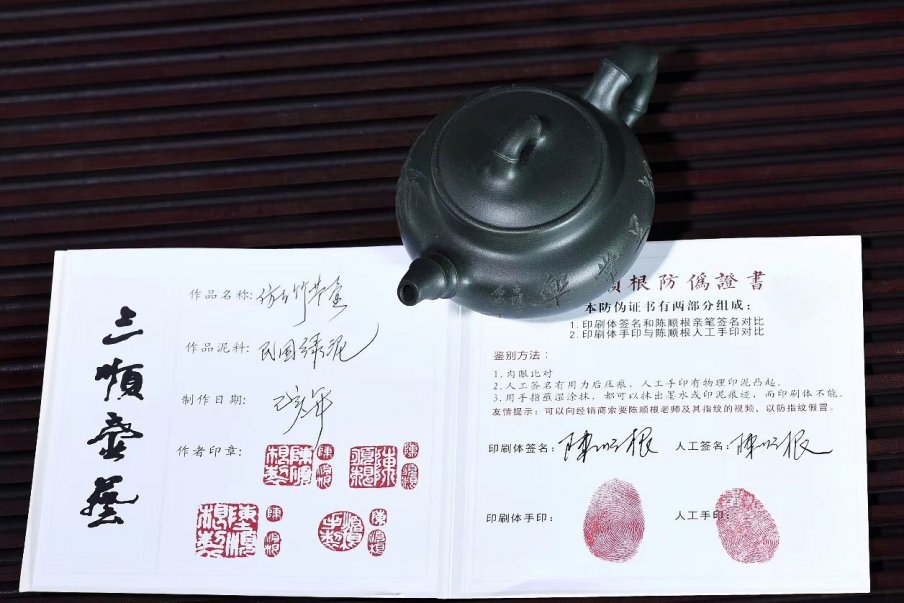 三順壺藝
作品名称: 仿古竹节壶
作品泥料: 民国绿泥
制作日期: 己亥年
作者印章:
順根防僞證書
本防伪证书有两部分组成:
1.印刷体签名和陈顺根亲笔签名对比
2.印刷体手印与陈顺根人工手印对比
鉴别方法:
1.肉眼比对
2.人工签名有用力后压痕,人工手印有物理印泥凸起。
3.用手指蘸湿涂抹,都可以抹出墨水或印泥痕迹,而印刷体不能。
友情提示: 可以向经销商索要陈顺根老师及其指纹的视频,以防指纹假冒。
印刷体签名: 陳順根 人工签名: 陳順根
印刷体手印: 人工手印